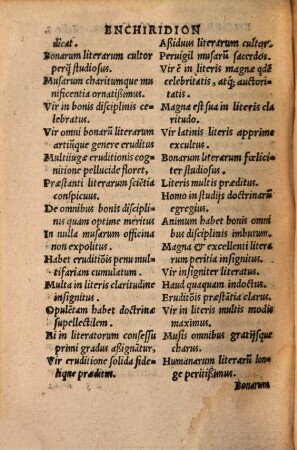 ENCHIRIDION
dicat.
Bonarum literarum cultor
perq̃ studiosus.
Musarum charitumque mu
nificentia ornatißimus.
Vir in bonis disciplinis ce
lebratus.
Vir omni bonarũ literarum
artiũque genere eruditus
Multiiugæ eruditionis cog
nitione pellucide floret,
Præstanti literarum sciẽtia
conspicuus.
De omnibus bonis discipli
nis quàm optime meritus
In nulla musarum officina
non expolitus.
Habet eruditiõis penu mul
tifariam cumulatum.
Multa in literis claritudine
insignitus.
Opulẽtam habet doctrinæ
supellectilem.
Ei in literatorum consessu
primi gradus aßignãtur,
Vir eruditione solida fide-
lique præditus.
Aßiduus literarum cultor.
Peruigil musarũ sacerdos.
Vir ẽ in literis magnæ qdẽ
celebritatis, atq; auctori-
tatis.
Magna est sua in literis cla
ritudo.
Vir latinis literis apprime
excultus.
Bonarum literarum fœlici-
ter studiosus.
Literis multis præditus.
Homo in studijs doctrinarũ
egregius.
Animum habet bonis omni
bus disciplinis imbutum.
Magna & excellenti litera
rum peritia insignitus.
Vir insigniter literatus.
Haud quaquam indoctus.
Eruditiõis præstãtia clarus.
Vir in literis multis modis
maximus.
Musis omnibus gratijsque
charus.
Humanarum literarũ lon-
ge peritißimus.
Bonarum